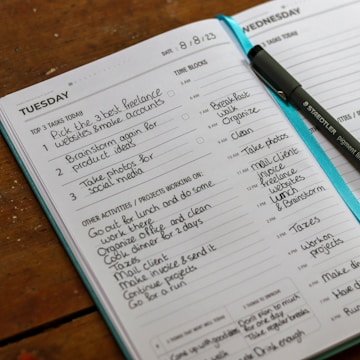 TUESDAY
DATE 8/8/23
TOP 3 TASKS TODAY
1 Pick the 3 best freelance
websites & make accounts
2 Brainstorm again for
product ideas
3 Take photos for
social media
OTHER ACTIVITIES / PROJECTS WORKING ON:
Go out for lunch and do some
work there
Organize office and clean
Cook dinner for 2 days
Taxes
Mail client
Make invoice & send it
Continue projects
Go for a run
TIME BLOCKS
Breakfast
walk
Organize
Clean
Take photos
Mail client
invoice
freelance
websites
lunch
& Brainstorm
Taxes
Work on
projects
Make din
Have d
Ru
THINGS THAT WENT WELL TODAY
THINGS TO IMPROVE
Don't plan too much
for one day
Take regular breaks
enough
WEDNESDAY
TASKS TODAY
1
2
3
STAEDTLER
pigment